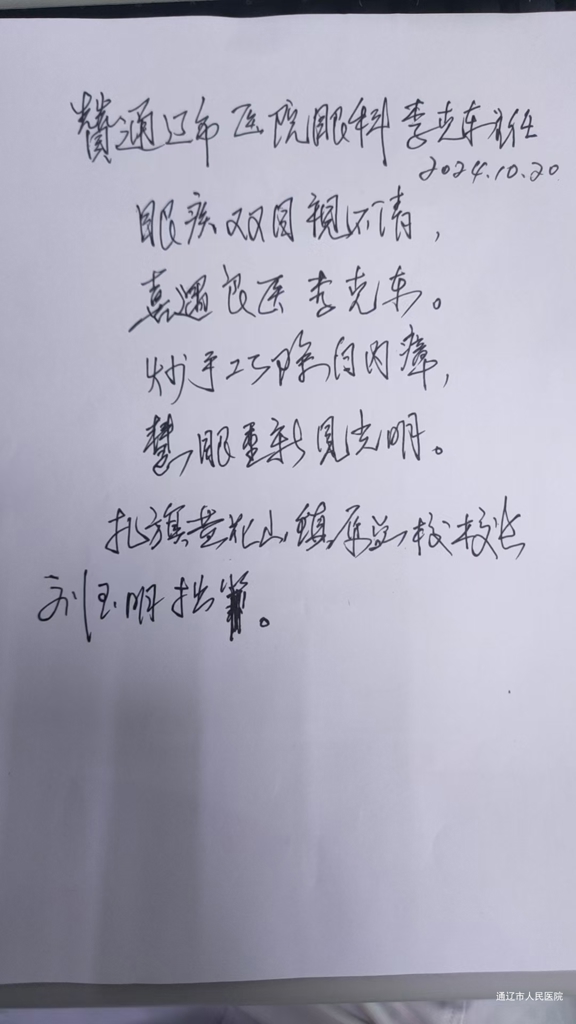 赞通辽市医院眼科李克东主任
2024.10.20
眼疾双目视不清,
喜遇良医李克东。
妙手巧除白内瘴,
慧眼重新见光明。
扎旗黄花山镇原总校校长
刘玉明拙笔。
通辽市人民医院